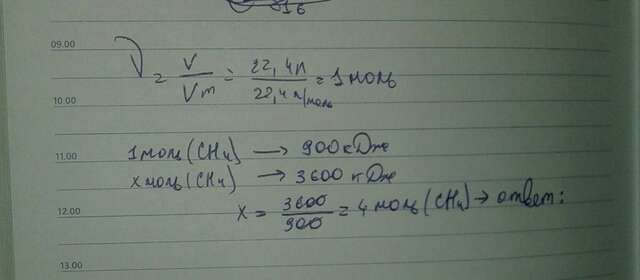 16
09.00
ν = V/Vm = 22,4л/22,4л/моль = 1 моль
10.00
11.00
1 моль (CH4) → 900 кДж
x моль (CH4) → 3600 кДж
12.00
x = 3600/900 = 4 моль (CH4) → ответ:
13.00